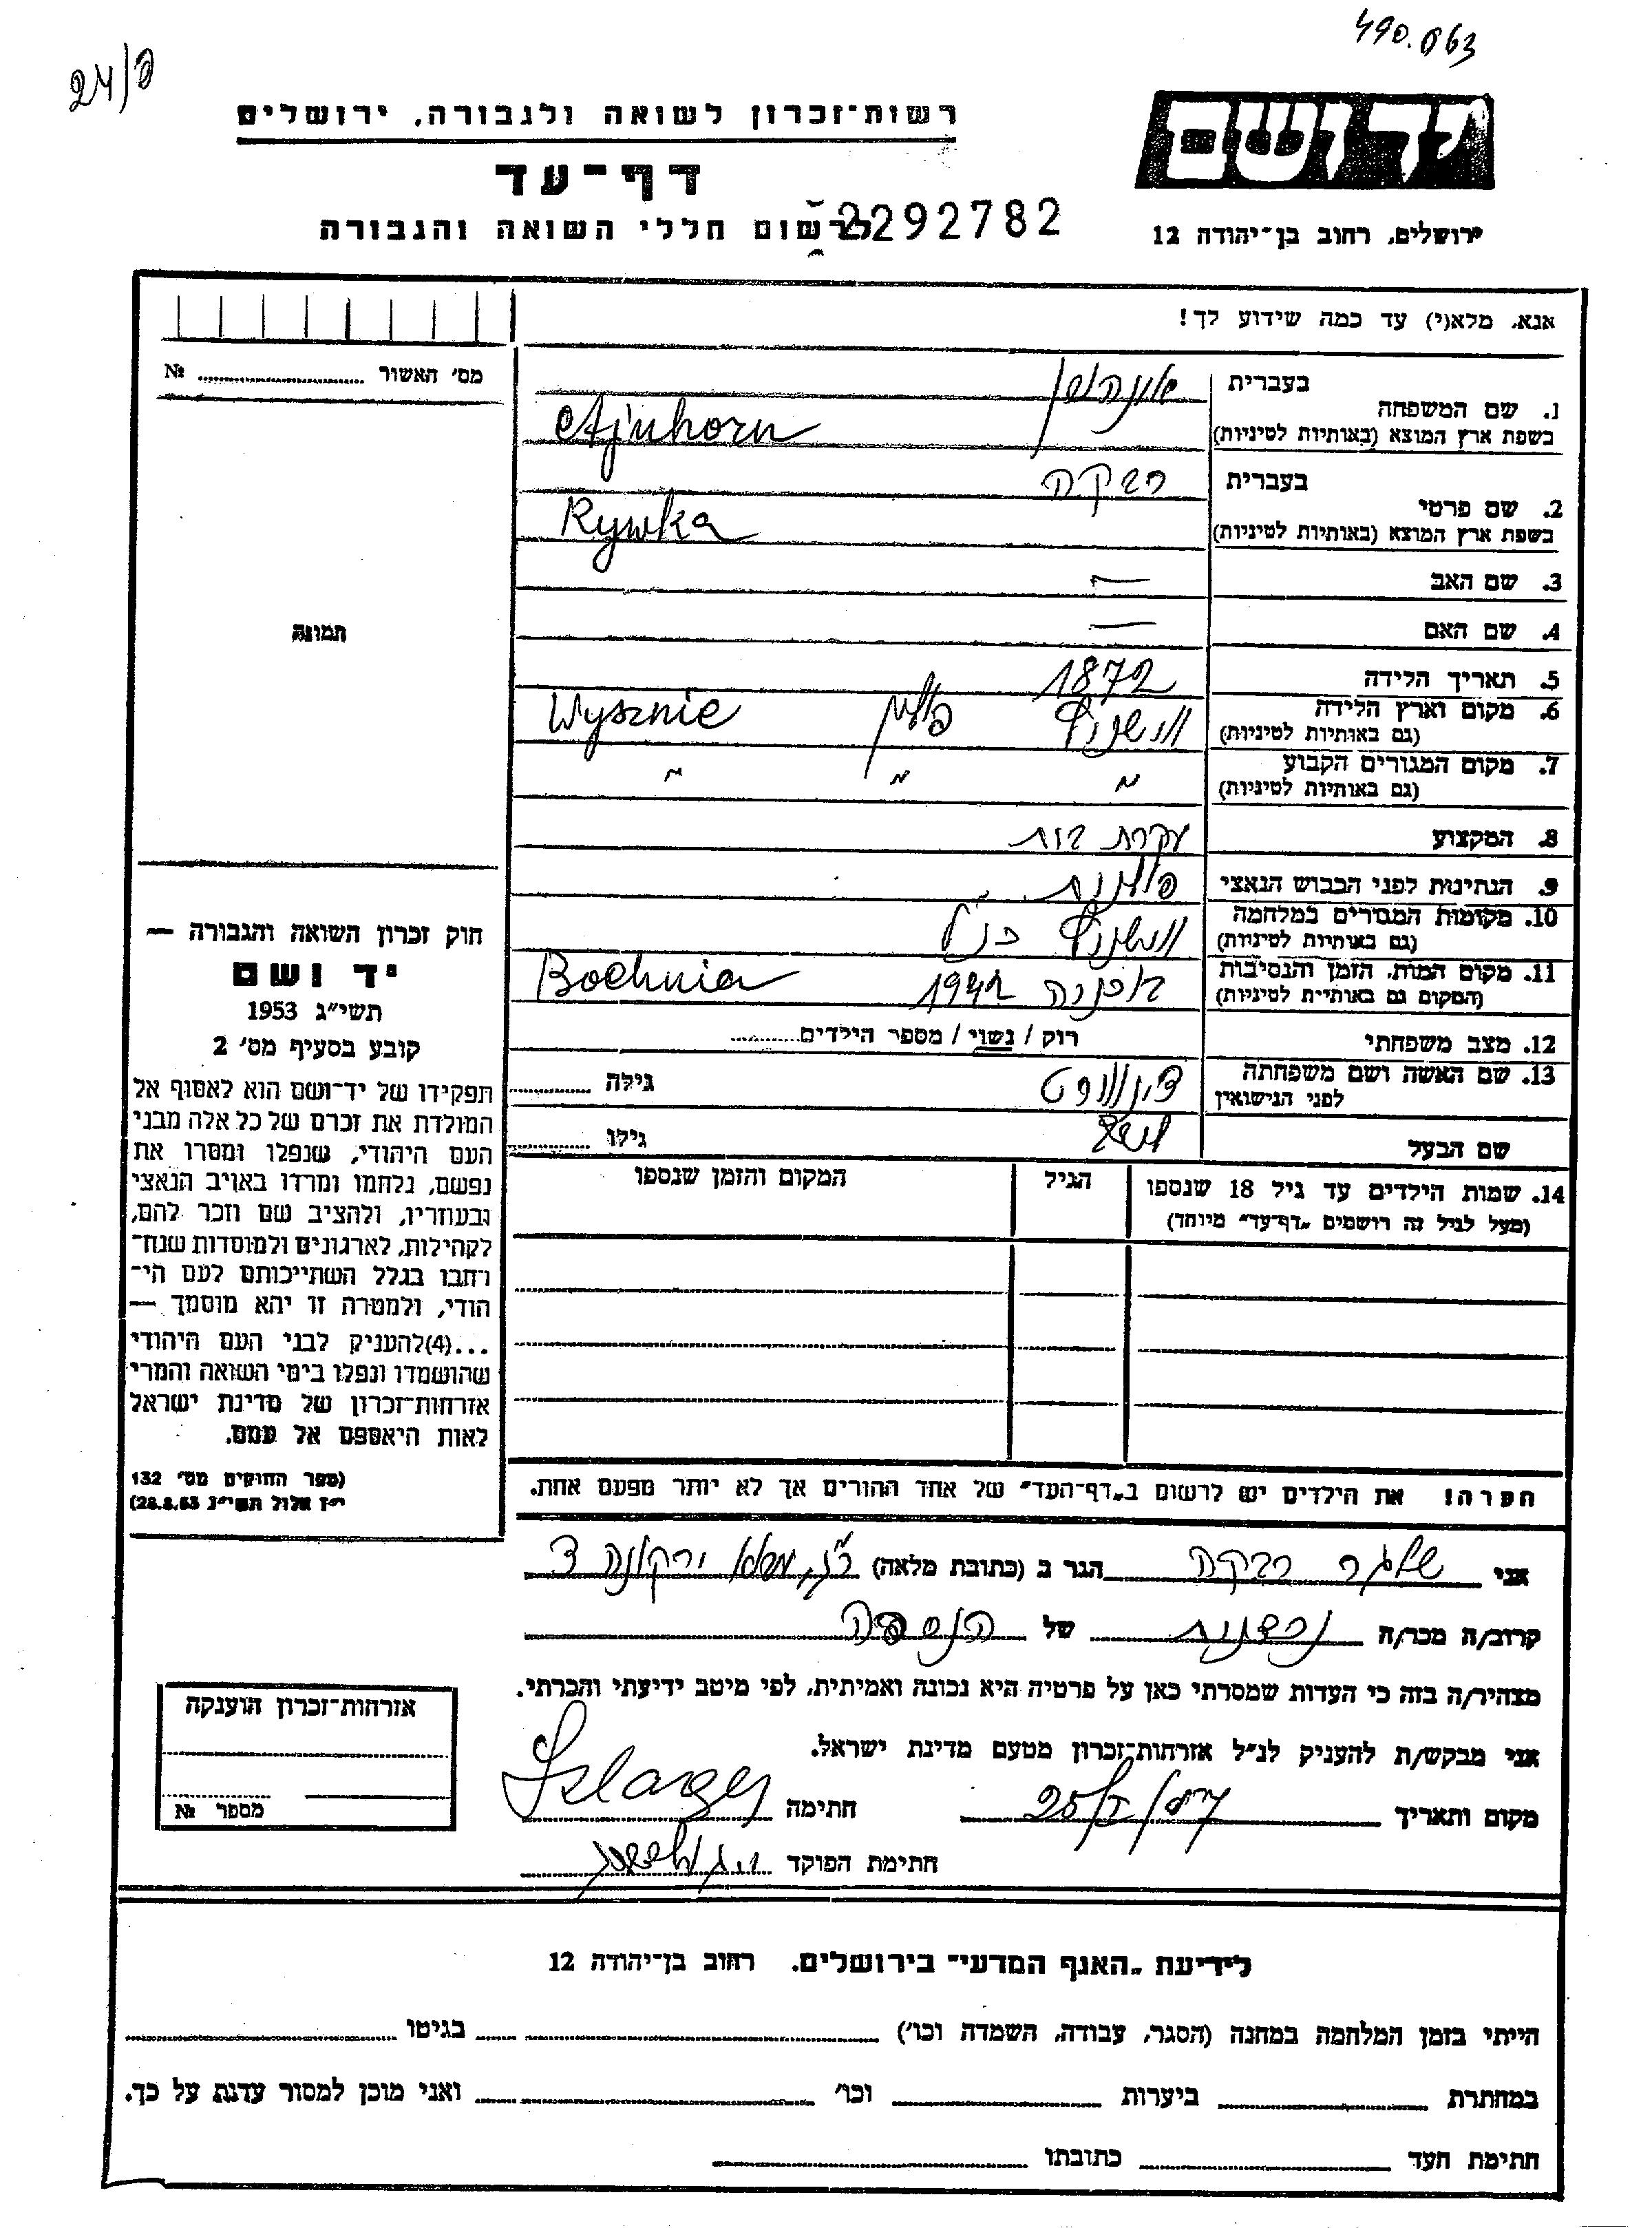 490.063
24/פ
רשות־זכרון לשואה ולגבורה, ירושלים
יד ושם
דף־עד
לרשום חללי השואה והגבורה
2292782
ירושלים, רחוב בן־יהודה 12
אנא, מלא(י) עד כמה שידוע לך!
מס' האשור № ........
1. שם המשפחה
בעברית
בשפת ארץ המוצא (באותיות לטיניות) Ajnhorn
2. שם פרטי
בעברית רבקה
בשפת ארץ המוצא (באותיות לטיניות) Rywka
3. שם האב —
4. שם האם —
תמונה
5. תאריך הלידה 1872
6. מקום וארץ הלידה פולין Wysznie
(גם באותיות לטיניות)
7. מקום המגורים הקבוע " " "
(גם באותיות לטיניות)
8. המקצוע עקרת בית
9. הנתינות לפני הכבוש הנאצי פולנית
10. מקומות המגורים במלחמה כנ"ל
(גם באותיות לטיניות)
11. מקום המות, הזמן והנסיבות בוכניה 1942 Bochnia
(המקום גם באותיות לטיניות)
12. מצב משפחתי רוק / נשוי / מספר הילדים........
13. שם האשה ושם משפחתה
לפני הנישואין גילה ........
שם הבעל גילו ........
14. שמות הילדים עד גיל 18 שנספו
(מעל לגיל זה רושמים "דף־עד" מיוחד)
הגיל
המקום והזמן שנספו
חוק זכרון השואה והגבורה —
יד ושם
תשי"ג 1953
קובע בסעיף מס' 2
תפקידו של יד־ושם הוא לאסוף אל
המולדת את זכרם של כל אלה מבני
העם היהודי, שנפלו ומסרו את
נפשם, נלחמו ומרדו באויב הנאצי
ובעוזריו, ולהציב שם וזכר להם,
לקהילות, לארגונים ולמוסדות שנח־
רבו בגלל השתייכותם לעם הי־
הודי, ולמטרה זו יהא מוסמך —
...(4)להעניק לבני העם היהודי
שהושמדו ונפלו בימי השואה והמרי
אזרחות־זכרון של מדינת ישראל
לאות היאספם אל עמם.
(ספר החוקים מס' 132
י"ז אלול תשי"ג 28.8.53)
הערה! את הילדים יש לרשום ב"דף־העד" של אחד ההורים אך לא יותר מפעם אחת.
אני שלגר רבקה הגר ב (כתובת מלאה)
קרוב/ה מכר/ה נכדנית של הנספה
מצהיר/ה בזה כי העדות שמסרתי כאן על פרטיה היא נכונה ואמיתית, לפי מיטב ידיעתי והכרתי.
אני מבקש/ת להעניק לנ"ל אזרחות־זכרון מטעם מדינת ישראל.
מקום ותאריך חתימה Szlager
חתימת הפוקד
אזרחות־זכרון הוענקה
מספר №
לידיעת "האגף המדעי" בירושלים, רחוב בן־יהודה 12
הייתי בזמן המלחמה במחנה (הסגר, עבודה, השמדה וכו') ........ בגיטו ........
במחתרת ........ ביערות ........ וכו' ........ ואני מוכן למסור עדות על כך.
חתימת העד ........ כתובתו ........